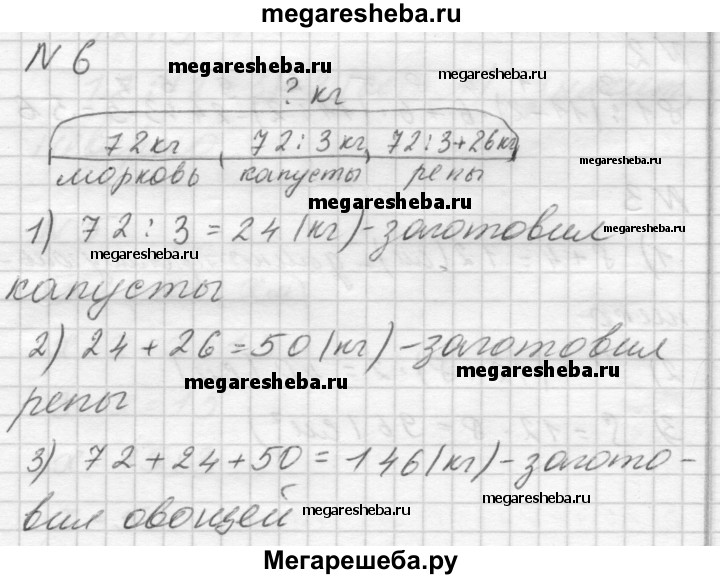 megaresheba.ru
N 6
megaresheba.ru
megaresheba.ru
? кг
72кг 72:3 кг 72:3+26кг
морковь капусты репы
megaresheba.ru
megaresheba.ru
1) 72:3=24(кг)-заготовил
megaresheba.ru
капусты
2) 24+26=50(кг)-заготовил
megaresheba.ru
megaresheba.ru
репы
3) 72+24+50=146(кг)-загото-
megaresheba.ru
вил овощей
megaresheba.ru
Мегарешеба.ру